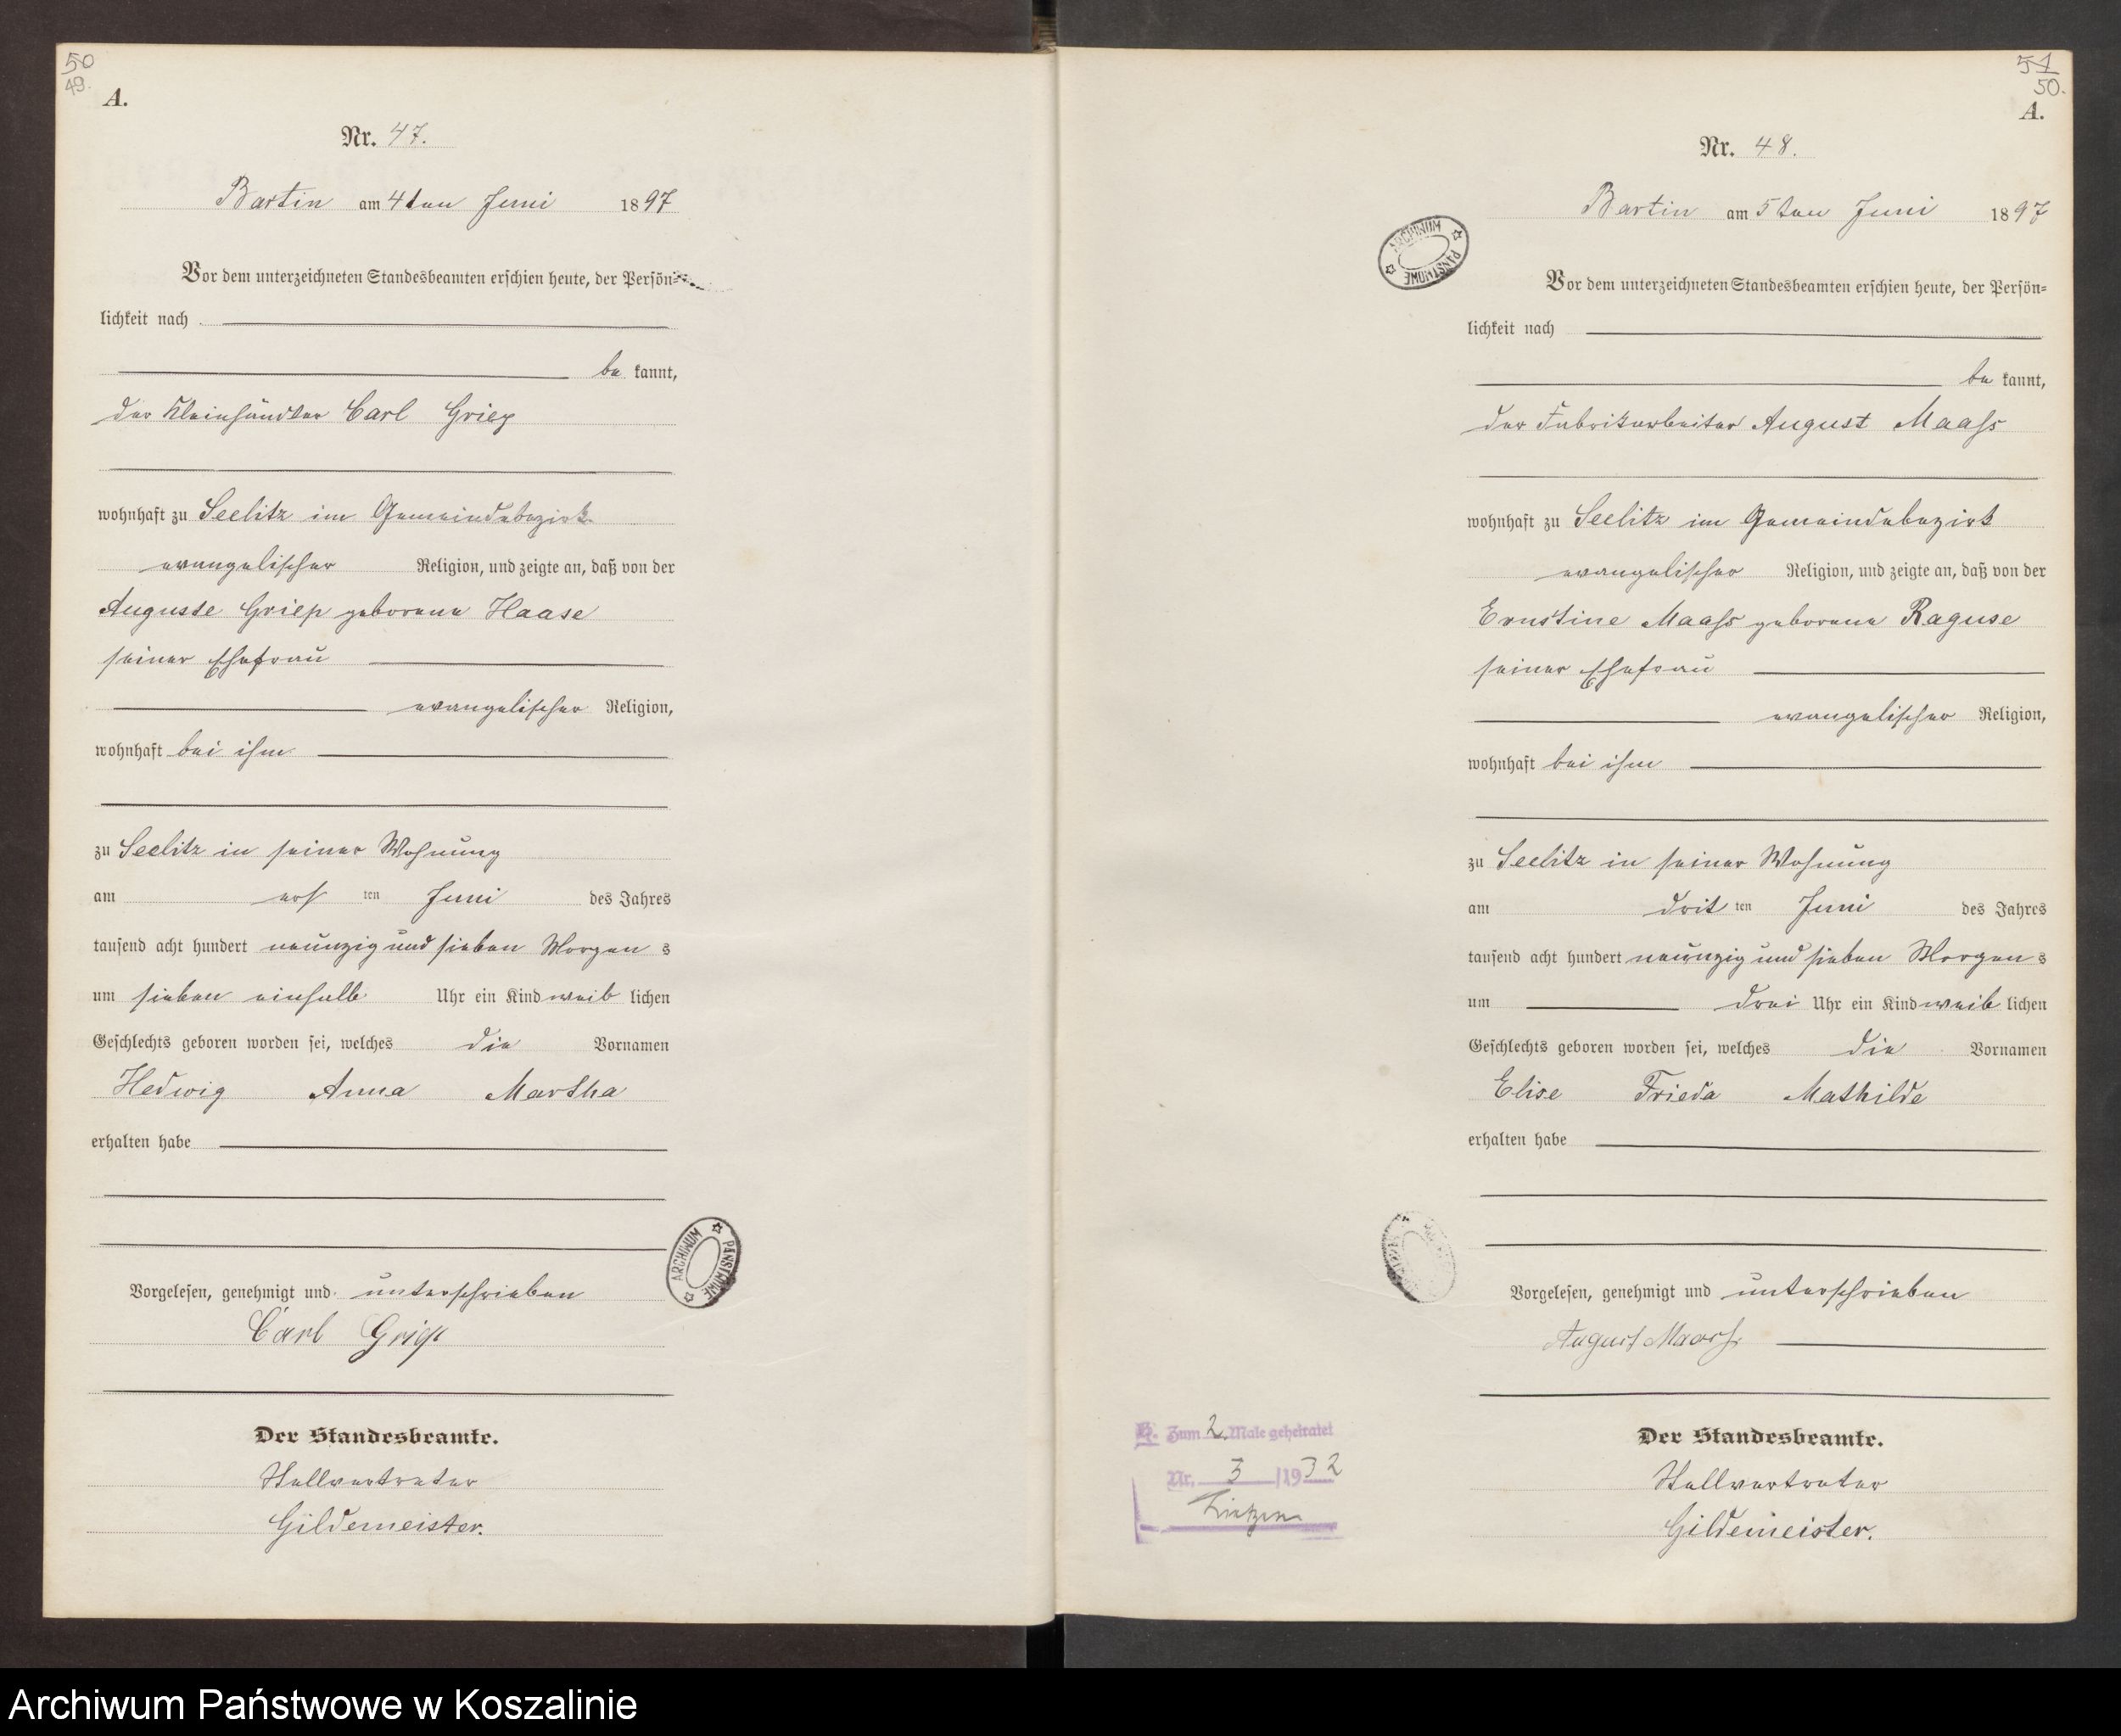 50
49.
A.
Nr. 47.
Bartin am 4ten Juni 1897
Vor dem unterzeichneten Standesbeamten erschien heute, der Persön=
lichkeit nach
be kannt,
der Kleinhändler Carl Griep
wohnhaft zu Seelitz im Gemeindebezirk
evangelischer Religion, und zeigte an, daß von der
Auguste Griep geborene Haase
seiner Ehefrau
evangelischer Religion,
wohnhaft bei ihm
zu Seelitz in seiner Wohnung
am ers ten Juni des Jahres
tausend acht hundert neunzig und sieben Morgen s
um sieben einhalb Uhr ein Kind weib lichen
Geschlechts geboren worden sei, welches die Vornamen
Hedwig Anna Martha
erhalten habe
Vorgelesen, genehmigt und unterschrieben
Carl Griep
Der Standesbeamte.
Stellvertreter
Gildemeister.
ARCHIWUM PAŃSTWOWE
51
50.
A.
Nr. 48.
Bartin am 5ten Juni 1897
ARCHIWUM PAŃSTWOWE
Vor dem unterzeichneten Standesbeamten erschien heute, der Persön=
lichkeit nach
be kannt,
der Fabrikarbeiter August Maaß
wohnhaft zu Seelitz im Gemeindebezirk
evangelischer Religion, und zeigte an, daß von der
Ernstine Maaß geborene Raguse
seiner Ehefrau
evangelischer Religion,
wohnhaft bei ihm
zu Seelitz in seiner Wohnung
am drit ten Juni des Jahres
tausend acht hundert neunzig und sieben Morgen s
um drei Uhr ein Kind weib lichen
Geschlechts geboren worden sei, welches die Vornamen
Elise Frieda Mathilde
erhalten habe
Vorgelesen, genehmigt und unterschrieben
August Maaß
Der Standesbeamte.
Stellvertreter
Gildemeister.
Zum 2. Male geheiratet
Nr. 3 /1932
Archiwum Państwowe w Koszalinie